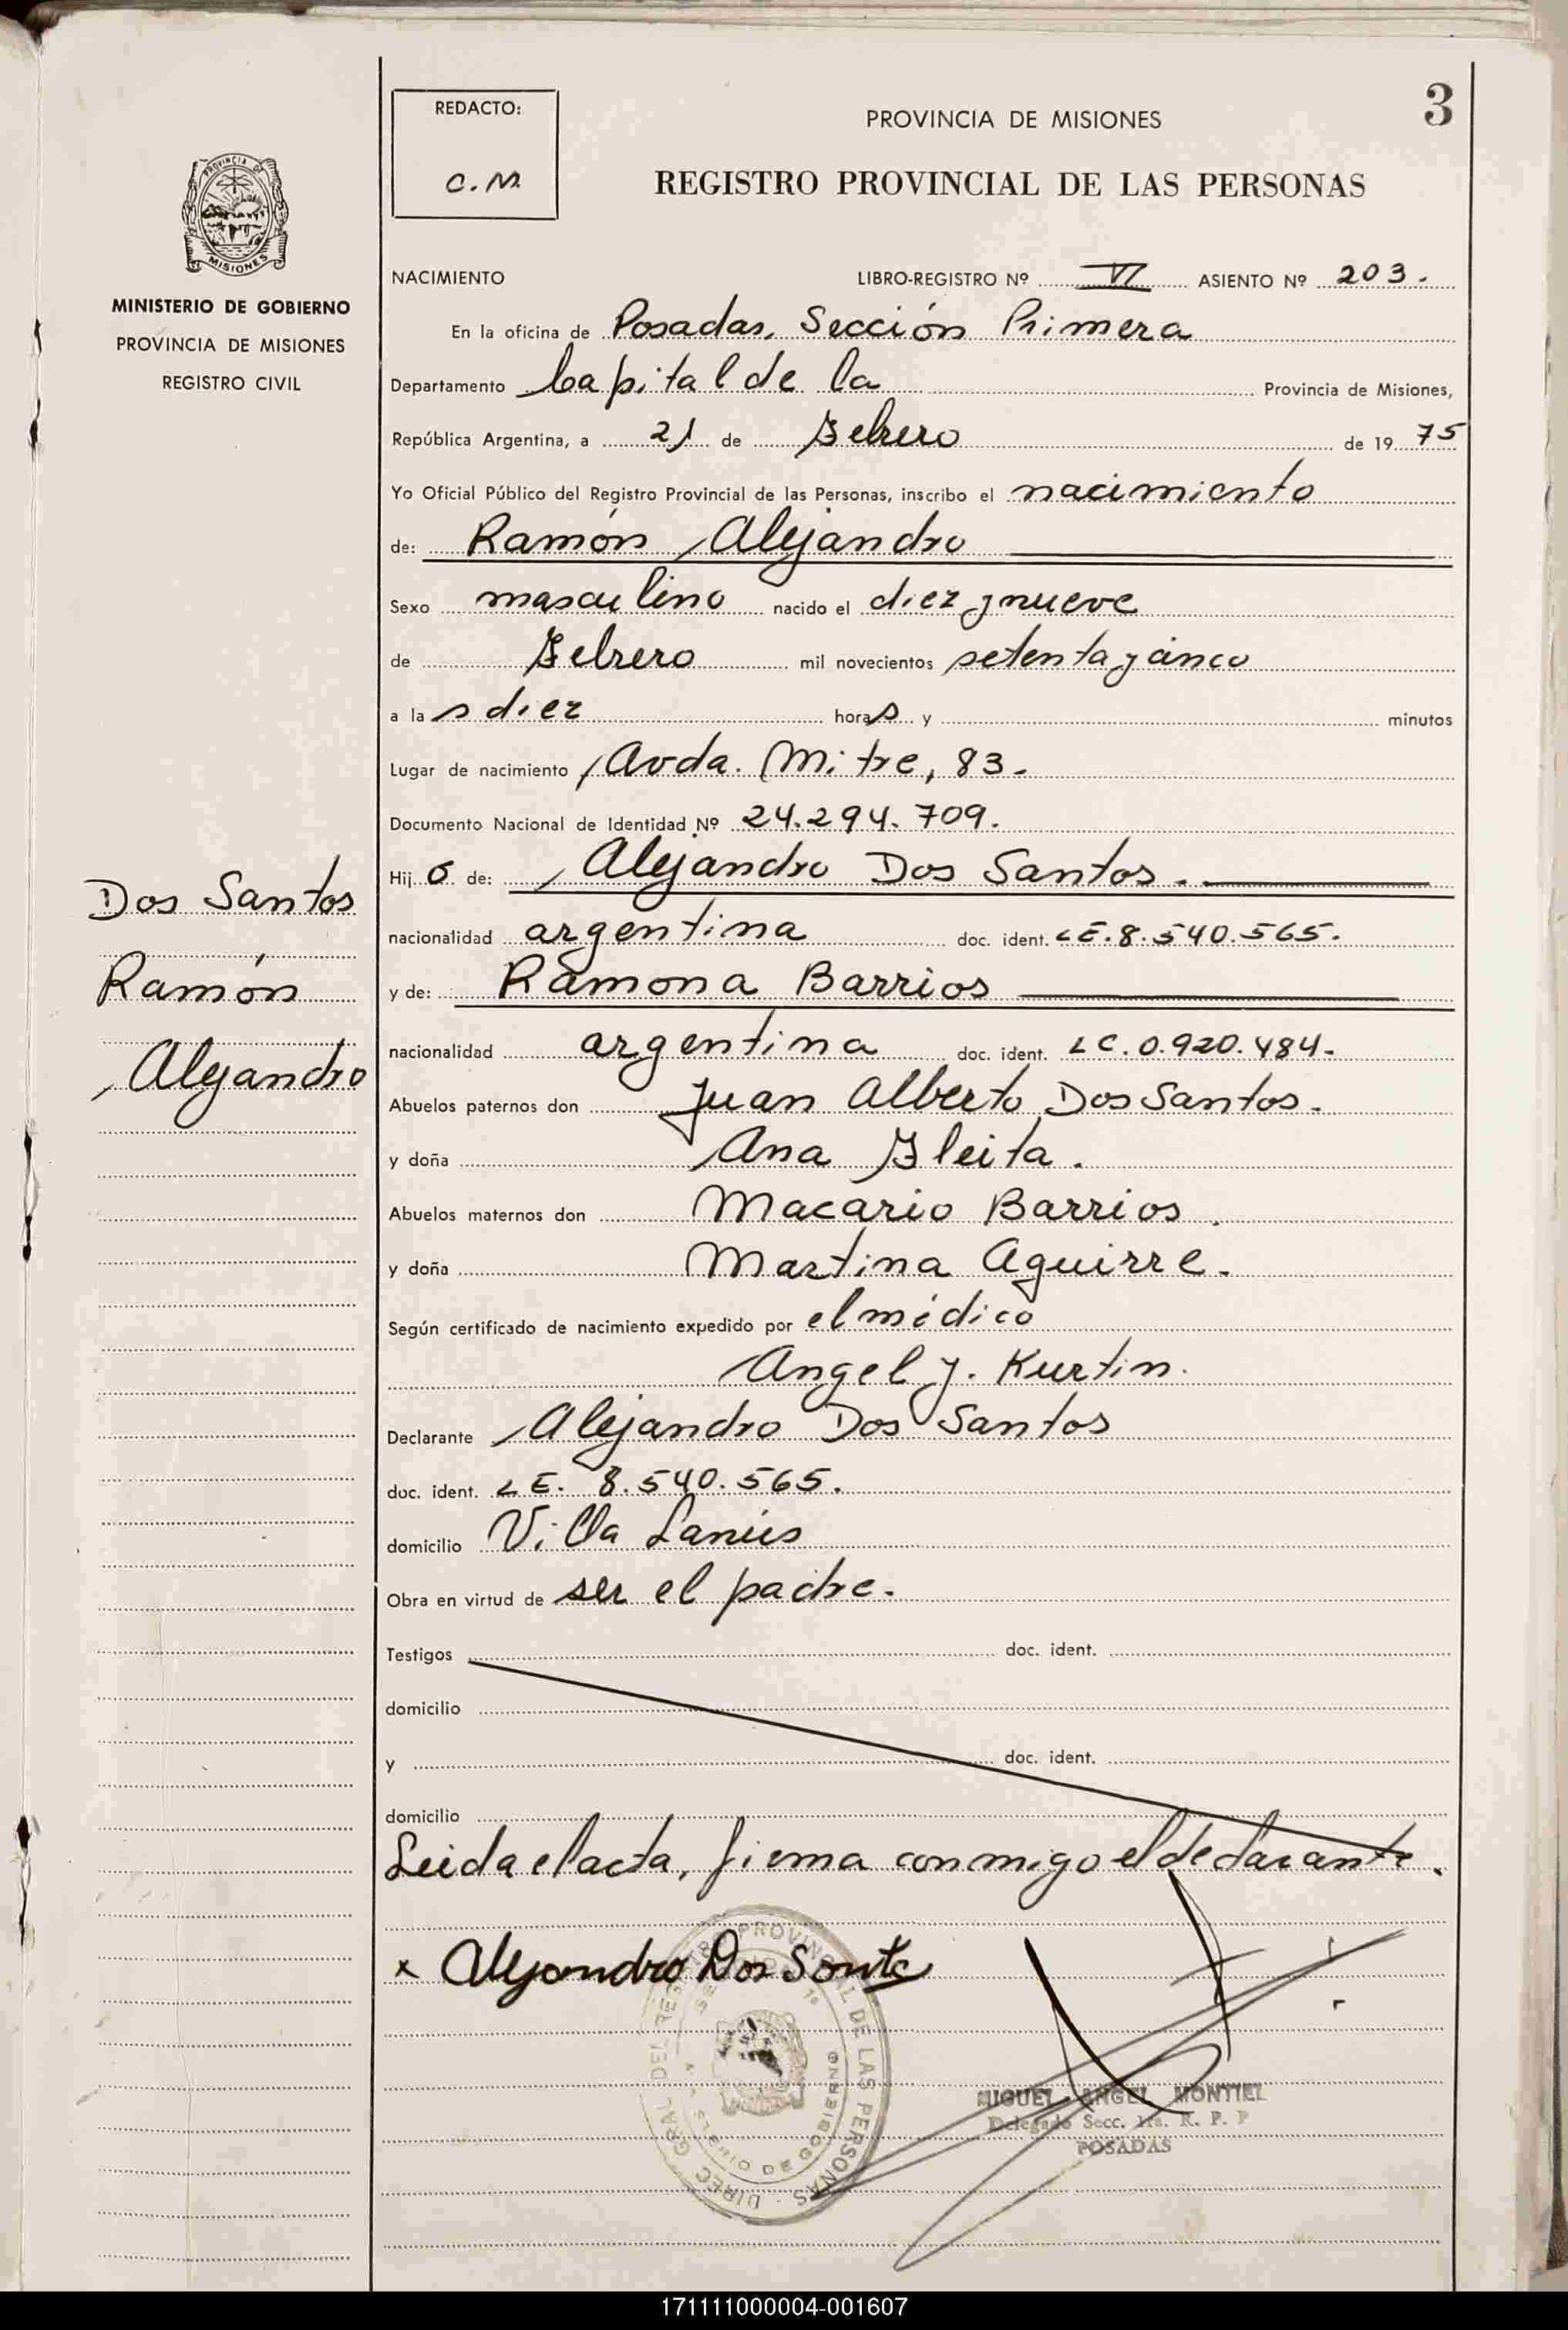 3
REDACTO:
C.M.
PROVINCIA DE MISIONES
REGISTRO PROVINCIAL DE LAS PERSONAS
PROVINCIA DE
MISIONES
MINISTERIO DE GOBIERNO
PROVINCIA DE MISIONES
REGISTRO CIVIL
NACIMIENTO LIBRO-REGISTRO Nº VI ASIENTO Nº 203.
En la oficina de Posadas, Sección Primera
Departamento Capital de la Provincia de Misiones,
República Argentina, a 21 de Febrero de 1975
Yo Oficial Público del Registro Provincial de las Personas, inscribo el nacimiento
de: Ramón Alejandro
Sexo masculino nacido el diez y nueve
de Febrero mil novecientos setenta y cinco
a las diez horas y minutos
Lugar de nacimiento Avda. Mitre, 83.
Documento Nacional de Identidad Nº 24.294.709.
Hijo de: Alejandro Dos Santos.
nacionalidad argentina doc. ident. LE.8.540.565.
y de: Ramona Barrios
nacionalidad argentina doc. ident. LC.0.920.484.
Dos Santos
Ramón
Alejandro
Abuelos paternos don Juan Alberto Dos Santos.
y doña Ana Fleita.
Abuelos maternos don Macario Barrios.
y doña Martina Aguirre.
Según certificado de nacimiento expedido por el médico
Angel J. Kurtin.
Declarante Alejandro Dos Santos
doc. ident. LE. 8.540.565.
domicilio Villa Lanús
Obra en virtud de ser el padre.
Testigos doc. ident.
domicilio
y doc. ident.
domicilio
Leida el acta, firma conmigo el declarante.
x Alejandro Dos Santos
DIREC GRAL DEL REGISTRO PROVINCIAL DE LAS PERSONAS
DE GOBIERNO
MIGUEL ANGEL MONTIEL
Delegado Secc. 1ra. R. P. P
POSADAS
171111000004-001607